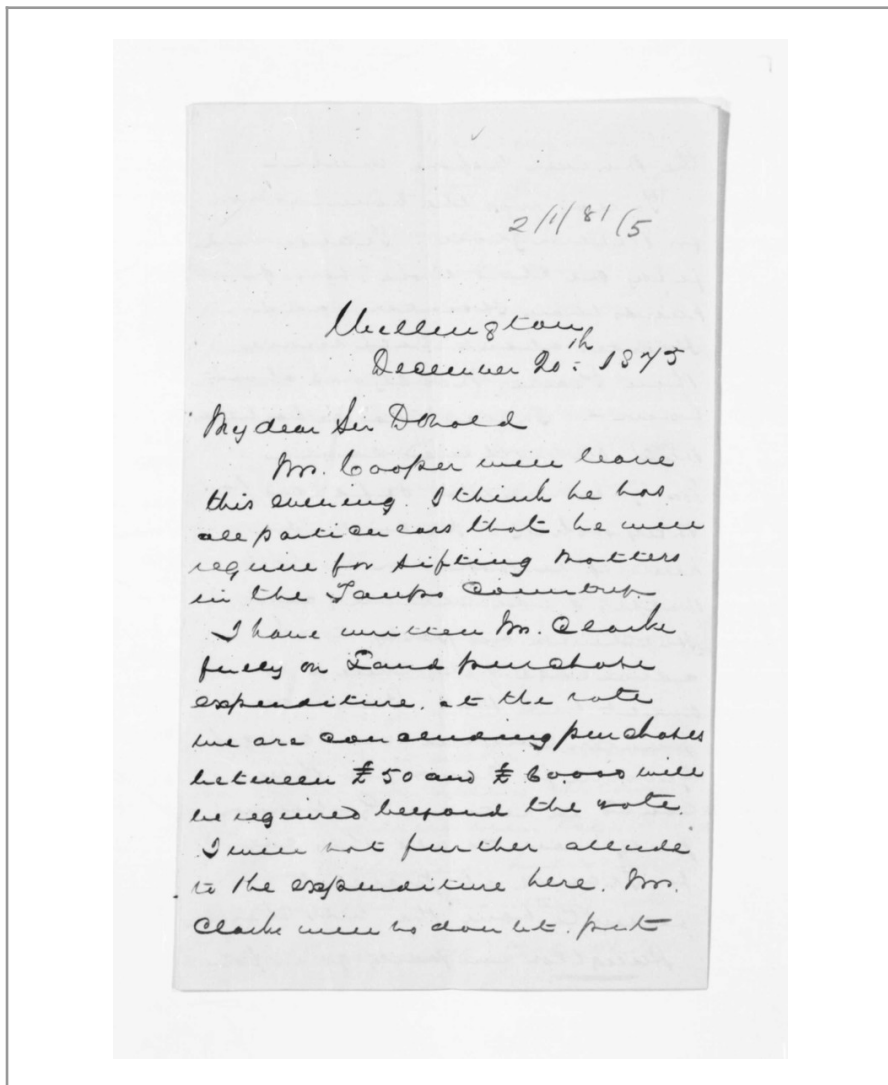 2/1/81/5
Wellington
December 20th 1875
My dear Sir Donald
Mr. Cooper will leave
this evening. I think he has
all particulars that he will
require for sifting matters
in the Taupo Country.
I have written Mr. Clarke
fully on Land purchase
expenditure. at the rate
we are concluding purchases
between £50 and £60.000 will
be required beyond the vote.
I will not further allude
to the expenditure here. Mr.
Clarke will no doubt. put